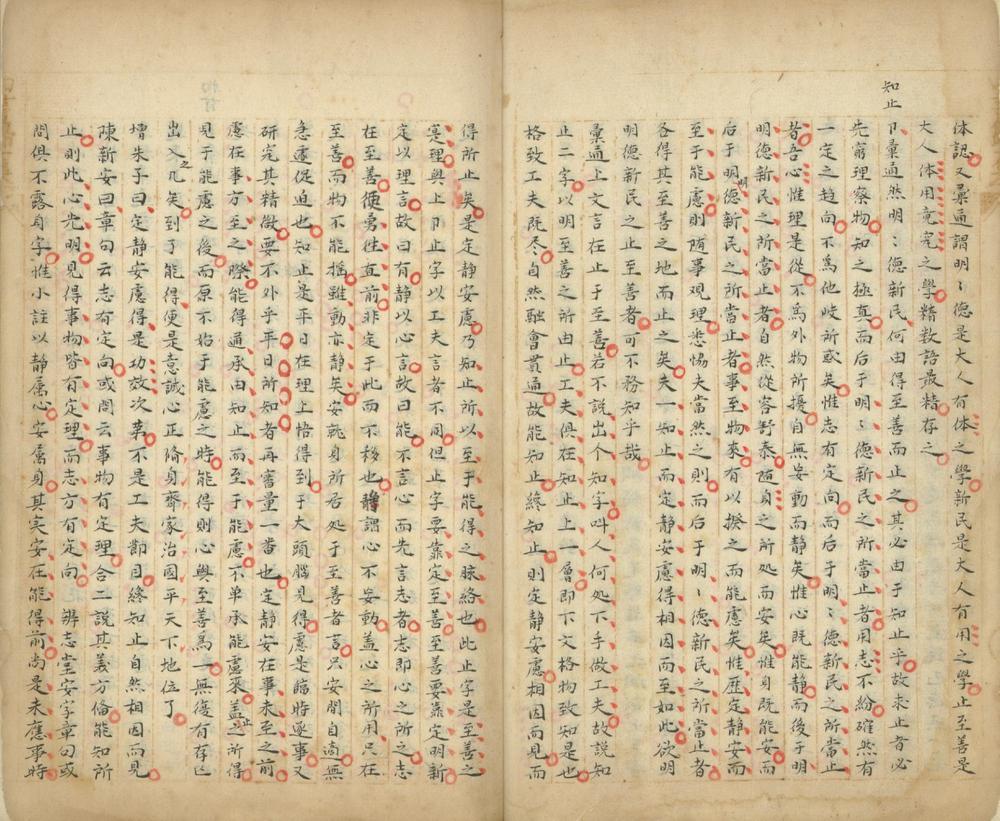 体認又彙函謂明〻德是大人有体之學新民是大人有用之學止至善是
大人体用竟完之學精数語最精存之
知止
卩彙函然明〻德新民何由得至善而止之其必由于知止乎故求止者必
先窮理察物知之極真而后于明〻德新民之所當止者用志不紛確然有
一定之趋向不為他岐所惑矣惟志有定向而后于明〻德新民之所當止
者吾心惟理是從不為外物所擾自無妄動而静矣惟心既能静而後于明
明德新民之所當止者自然從容舒泰随身之所处而安矣惟身既能安而
后于明明德新民之所當止者事至物來有以揆之而能慮矣惟歷定静安而
至于能慮則随事观理悉恊夫當然之則而后于明〻德新民之所當止者
各得其至善之地而止之矣夫一知止而定静安慮得相因而至如此欲明
明德新民之止至善者可不務知乎哉
彙函上文言在止于至善若不説出个知字叫人何处下手做工夫故説知
止二字以明至善之所由止工夫俱在知止上一層即下文格物致知是也
格致工夫既尽自然融會貫通故能知止終知止則定静安慮相因而見而
得所止矣是定静安慮乃知止所以至乎能得之脉絡也此止字是至善之
寔理與上卩止字以工夫言者不同但止字要靠定至善至善要靠定明新
定以理言故曰有静以心言故曰能不言心而先言志者志即心之所之志
在至善便勇徃直前非定于此而不移也静謂心不妄動盖心之所用只在
至善而物不能摇雖動亦静矣安就身所居处于至善者言只安閒自適無
急遽促迫也知止是平日在理上悟得到于大頭腦見得慮是臨時逐事又
研究其精微要不外乎平日所知者再審量一番也定静安在事未至之前
慮在事方至之際能得通承由知止而至于能慮不单承能慮來盖止之所得
見于能慮之後而原不始于能慮之時能得則心與至善為一無復有存亡
出入之几矣到了能得便是意誠心正脩身齊家治國平天下地位了
增朱子曰定静安慮得是功效次第不是工夫節目終知止自然相因而見
陳新安曰章句云志有定向或問云事物有定理合二説其義方俻能知所
止則此心光明見得事物皆有定理而志方有定向 辨志堂安字章句或
問俱不露身字惟小註以静属心安属身其实安在能得前尚是未應事時